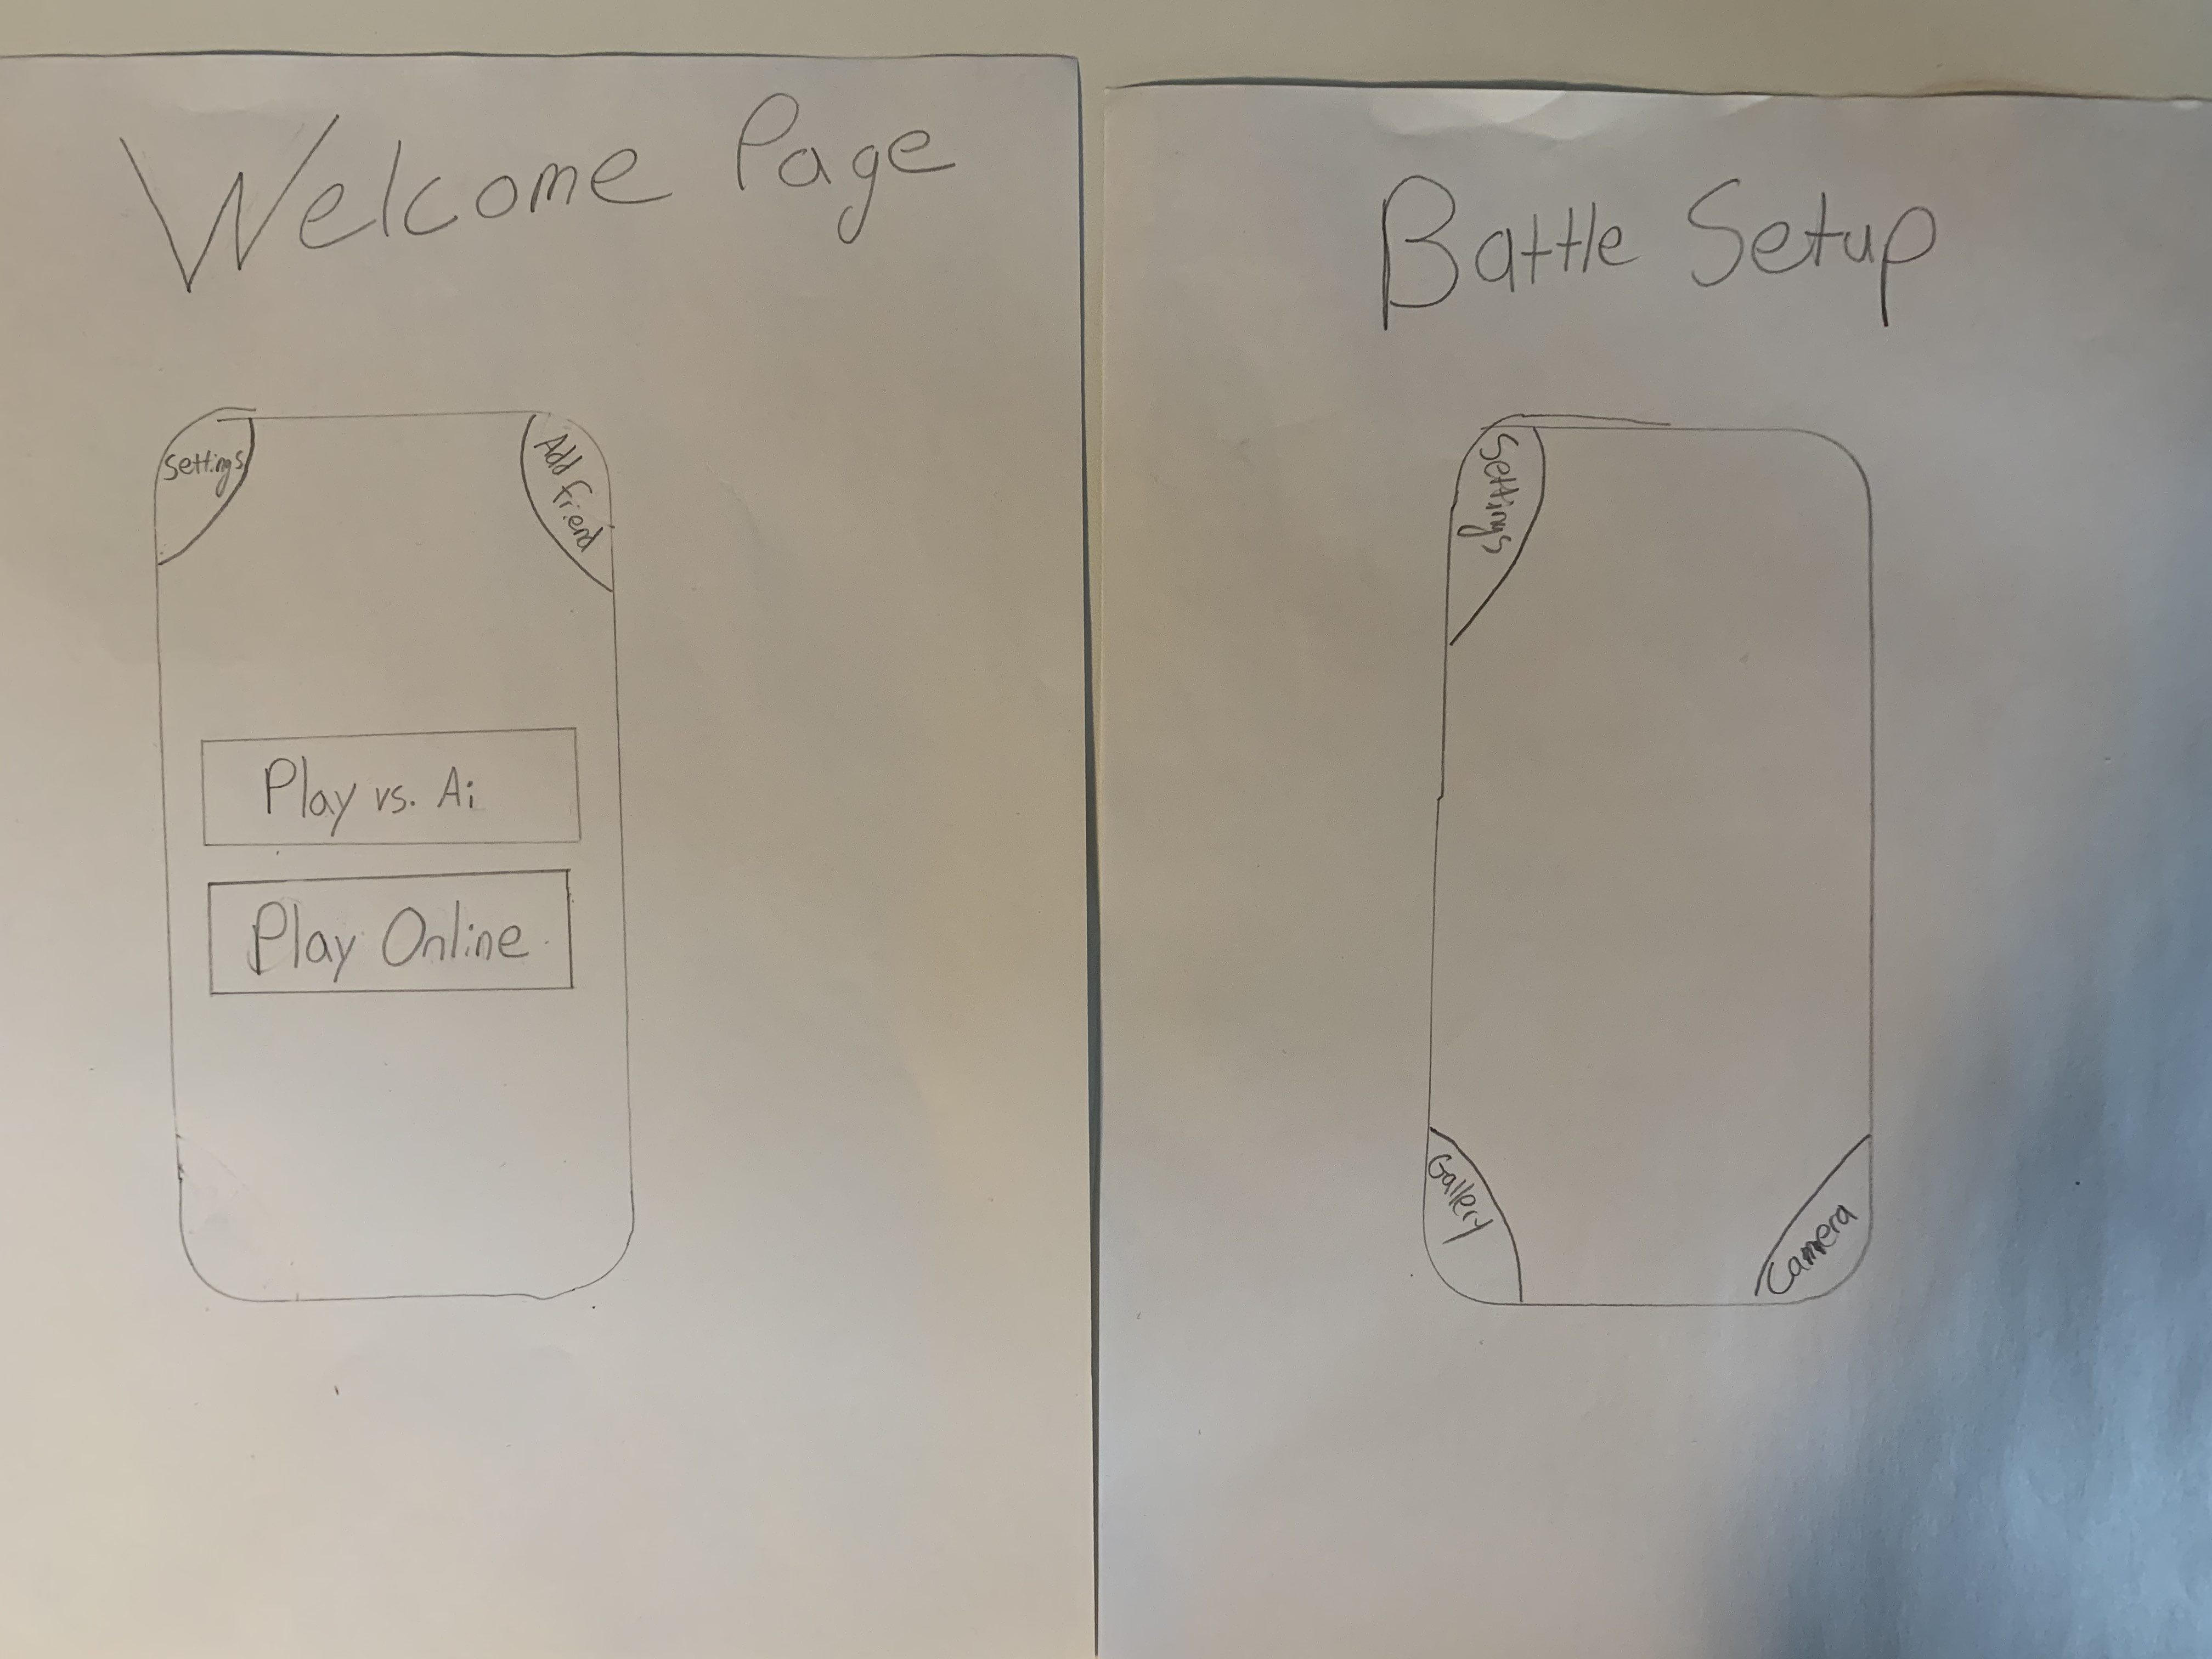 Welcome Page
Settings
Add friend
Play vs. Ai
Play Online
Battle Setup
Settings
Gallery
Camera